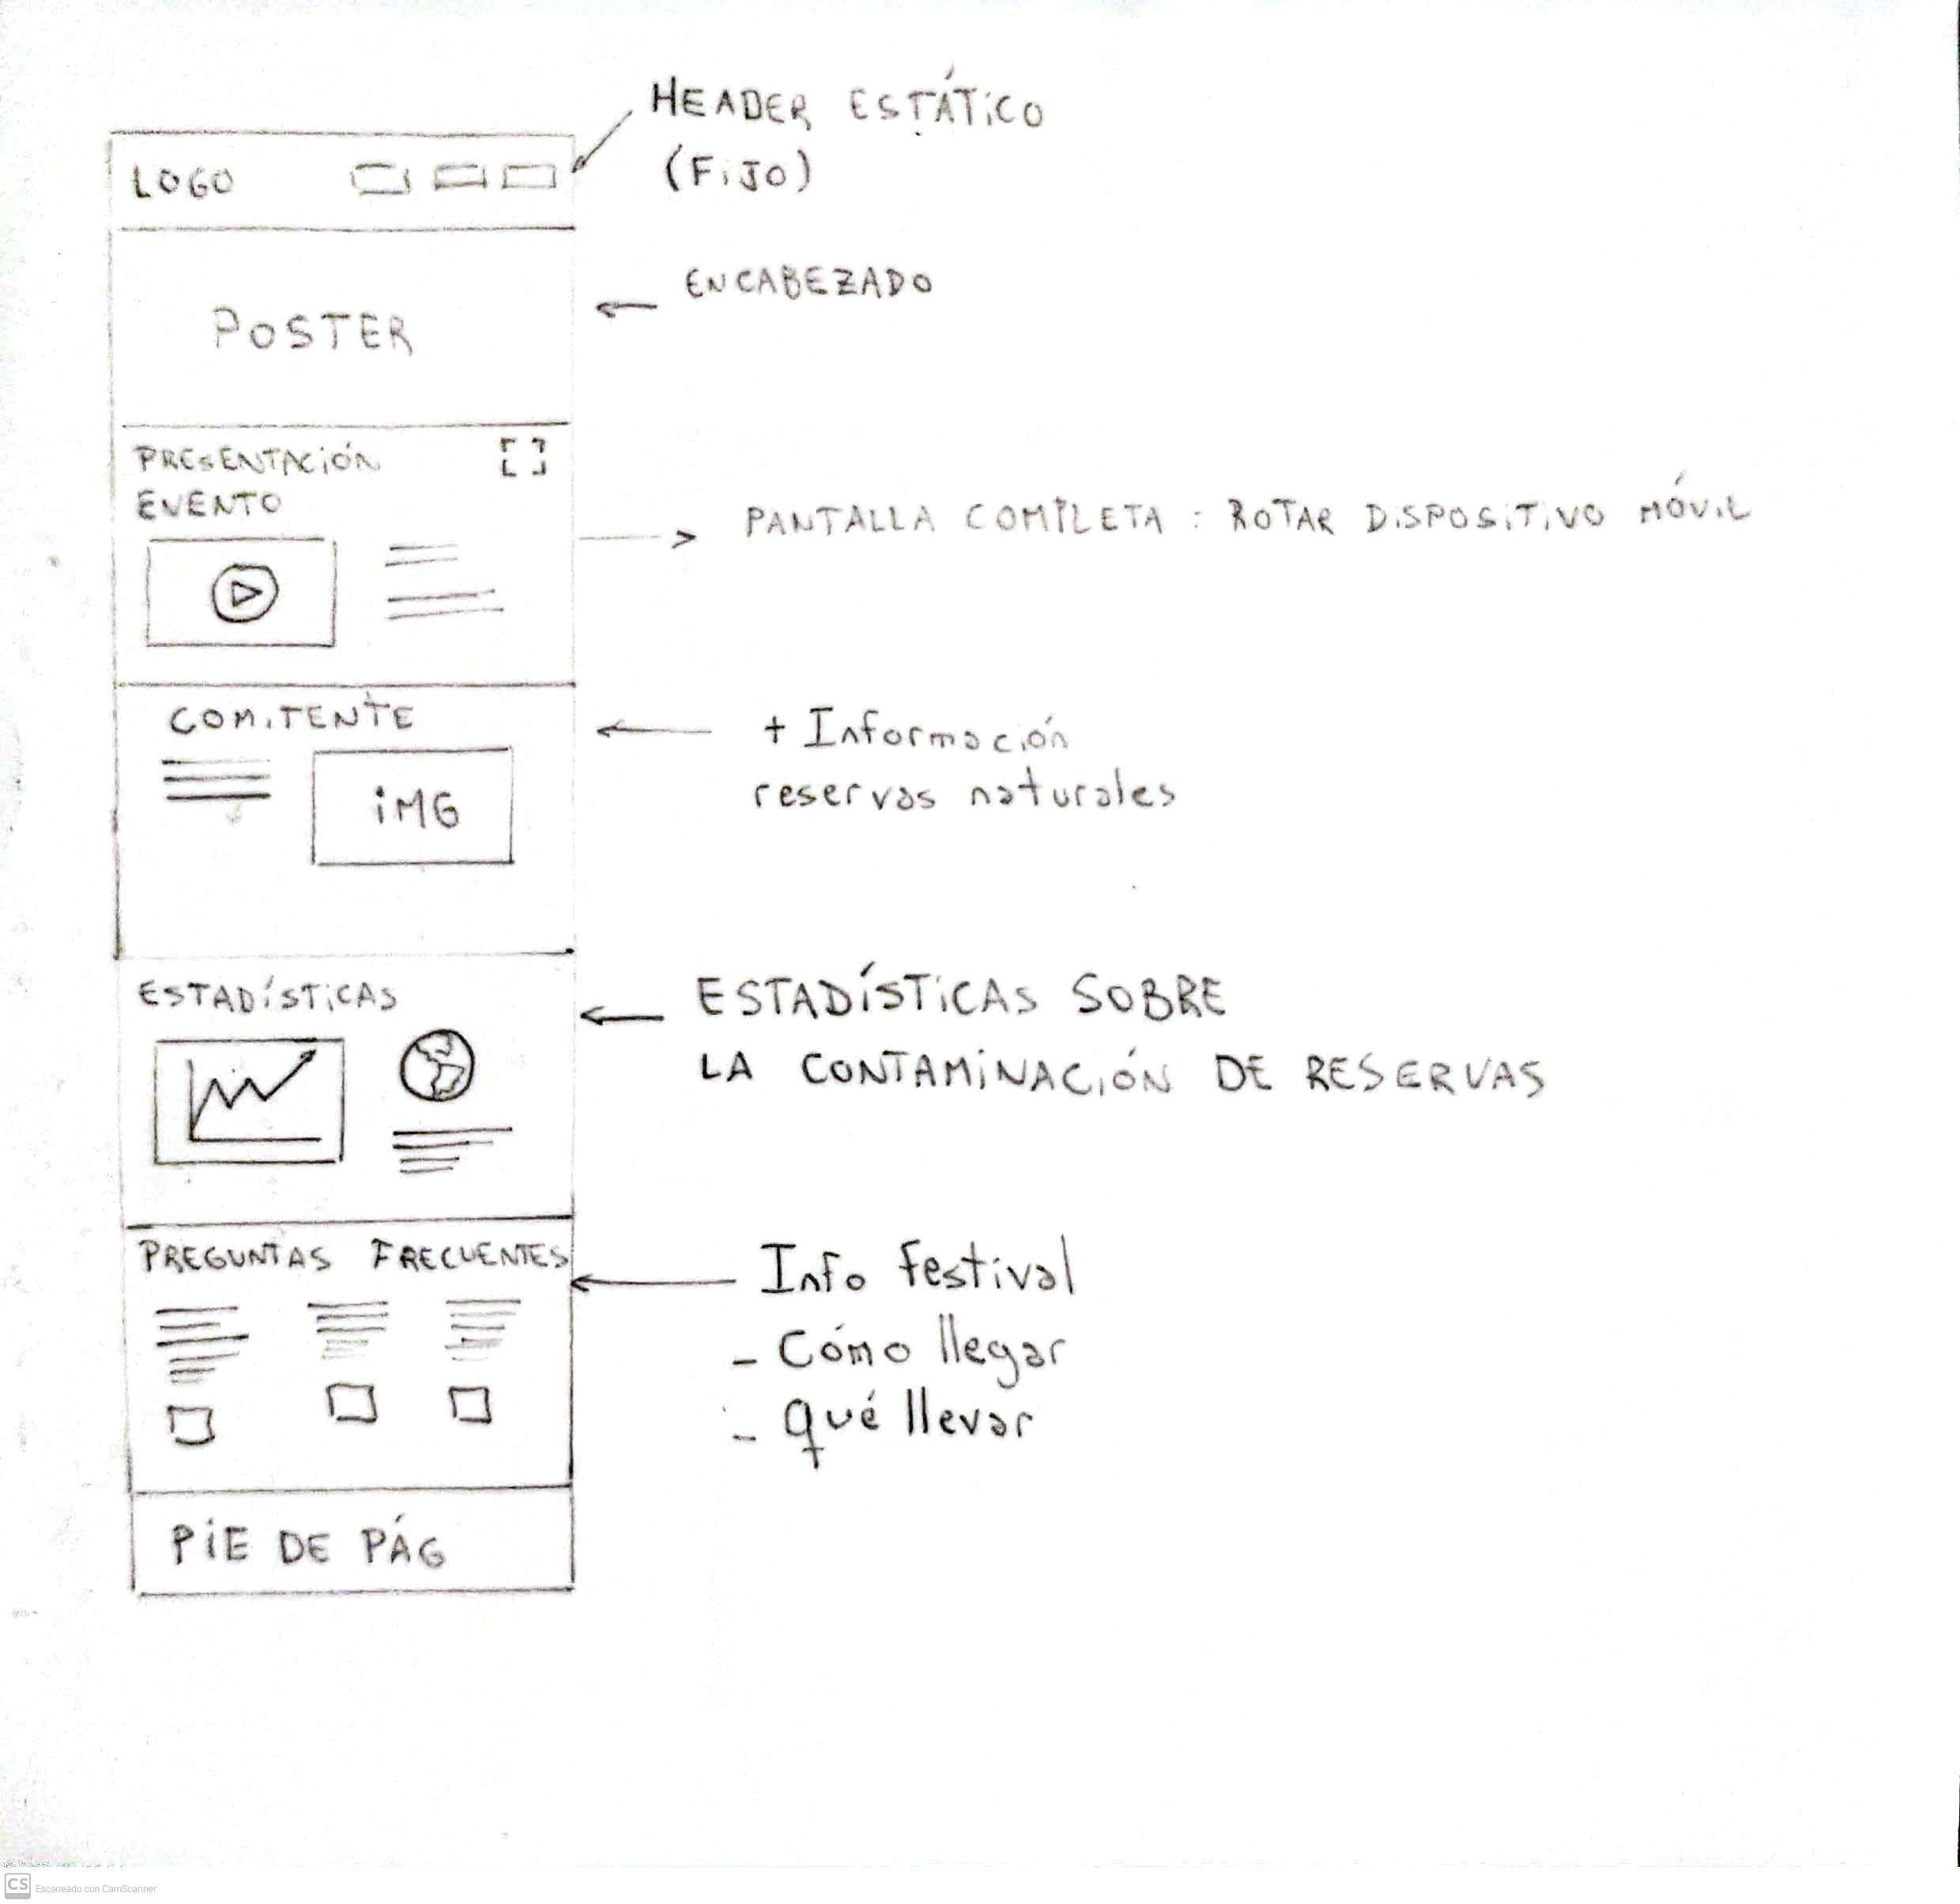 HEADER ESTÁTICO
(FIJO)
LOGO
ENCABEZADO
POSTER
PRESENTACIÓN
EVENTO
PANTALLA COMPLETA : ROTAR DISPOSITIVO MÓVIL
COMITENTE
+ Información
reservas naturales
IMG
ESTADÍSTICAS
ESTADÍSTICAS SOBRE
LA CONTAMINACIÓN DE RESERVAS
PREGUNTAS FRECUENTES
Info festival
- Cómo llegar
- Qué llevar
PIE DE PÁG
CS Escaneado con CamScanner